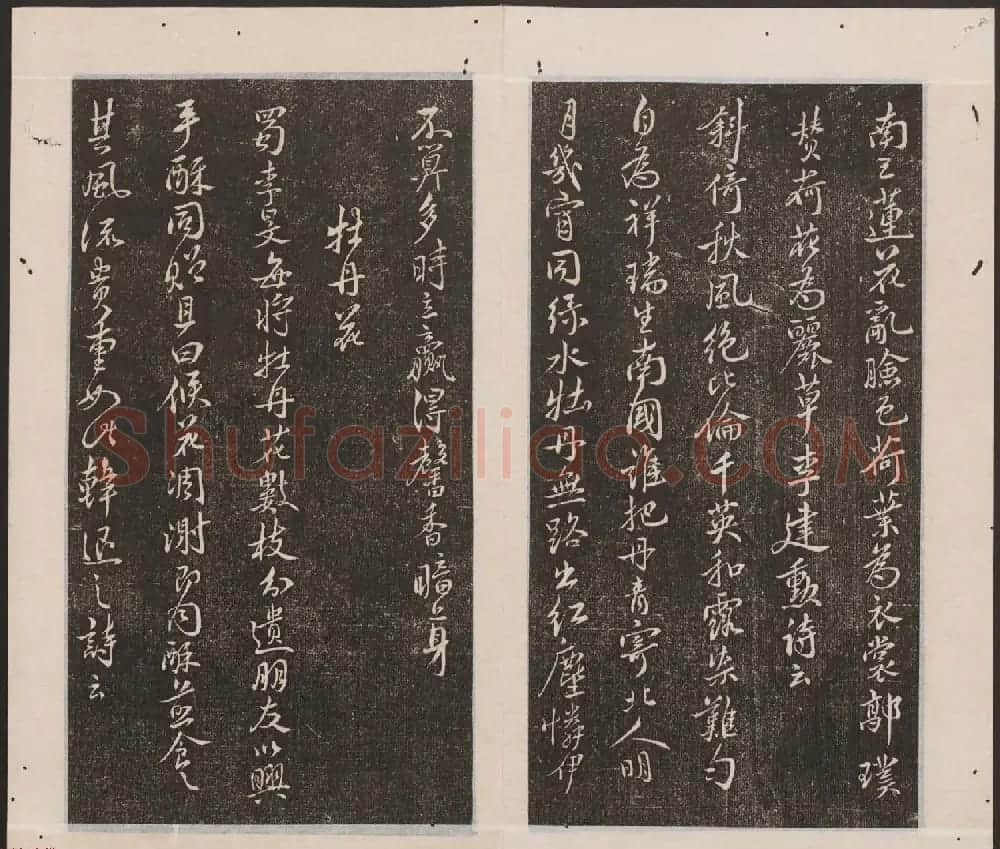 南云蓮花亂臉色荷葉為衣裳郭璞
贊荷花為麗草李建勳詩云
斜倚秋風絕比倫千英和露染難勻
自為祥瑞生南國誰把丹青寄北人明
月幾宵同綠水牡丹無路出紅塵憐伊
不算多時立贏得馨香暗上身
牡丹花
蜀李昊每將牡丹花數枝分遺朋友以興
平酥同贈且曰候花凋謝即同酥煎食之
其風流貴重如此韓退之詩云
Shufaziliao.COM